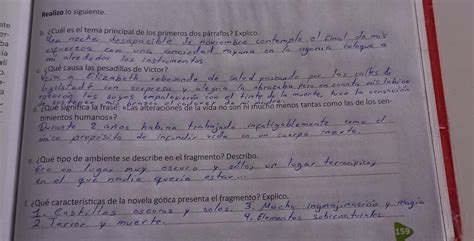 Realizo lo siguiente.
b. ¿Cuál es el tema principal de los primeros dos párrafos? Explico.
Una noche desapacible de noviembre contemple el final de mis
esfuerzos con una ansiedad rayana en la agonía coloque a
mi alrededor los instrumentos
c. ¿Qué causa las pesadillas de Victor?
Veía a Elizabeth rebosando de salud paseando por las calles de
Ingolstadt con sorpresa y alegría la abrazaba pero en cuanto mis labios
rozaron los suyos empalidecieron con el tinte de la muerte, tuve la sensación
de sostener mis brazos el cadáver de mi madre.
d. ¿Qué significa la frase: «Las alteraciones de la vida no son ni mucho menos tantas como las de los sen-
timientos humanos»?
Durante 2 años habina trabajado infatigablemente como el
único propósito de infundir vida en un cuerpo inerte.
e. ¿Qué tipo de ambiente se describe en el fragmento? Describo.
Era un lugar muy oscuro y sólo, un lugar terrorífico,
en el que nadie quería estar...
f. ¿Qué características de la novela gótica presenta el fragmento? Explico.
1. Castillos oscuros y solos. 3. Mucha imaginación y magia
2. Terror y muerte. 4. Elementos sobrenaturales.
159